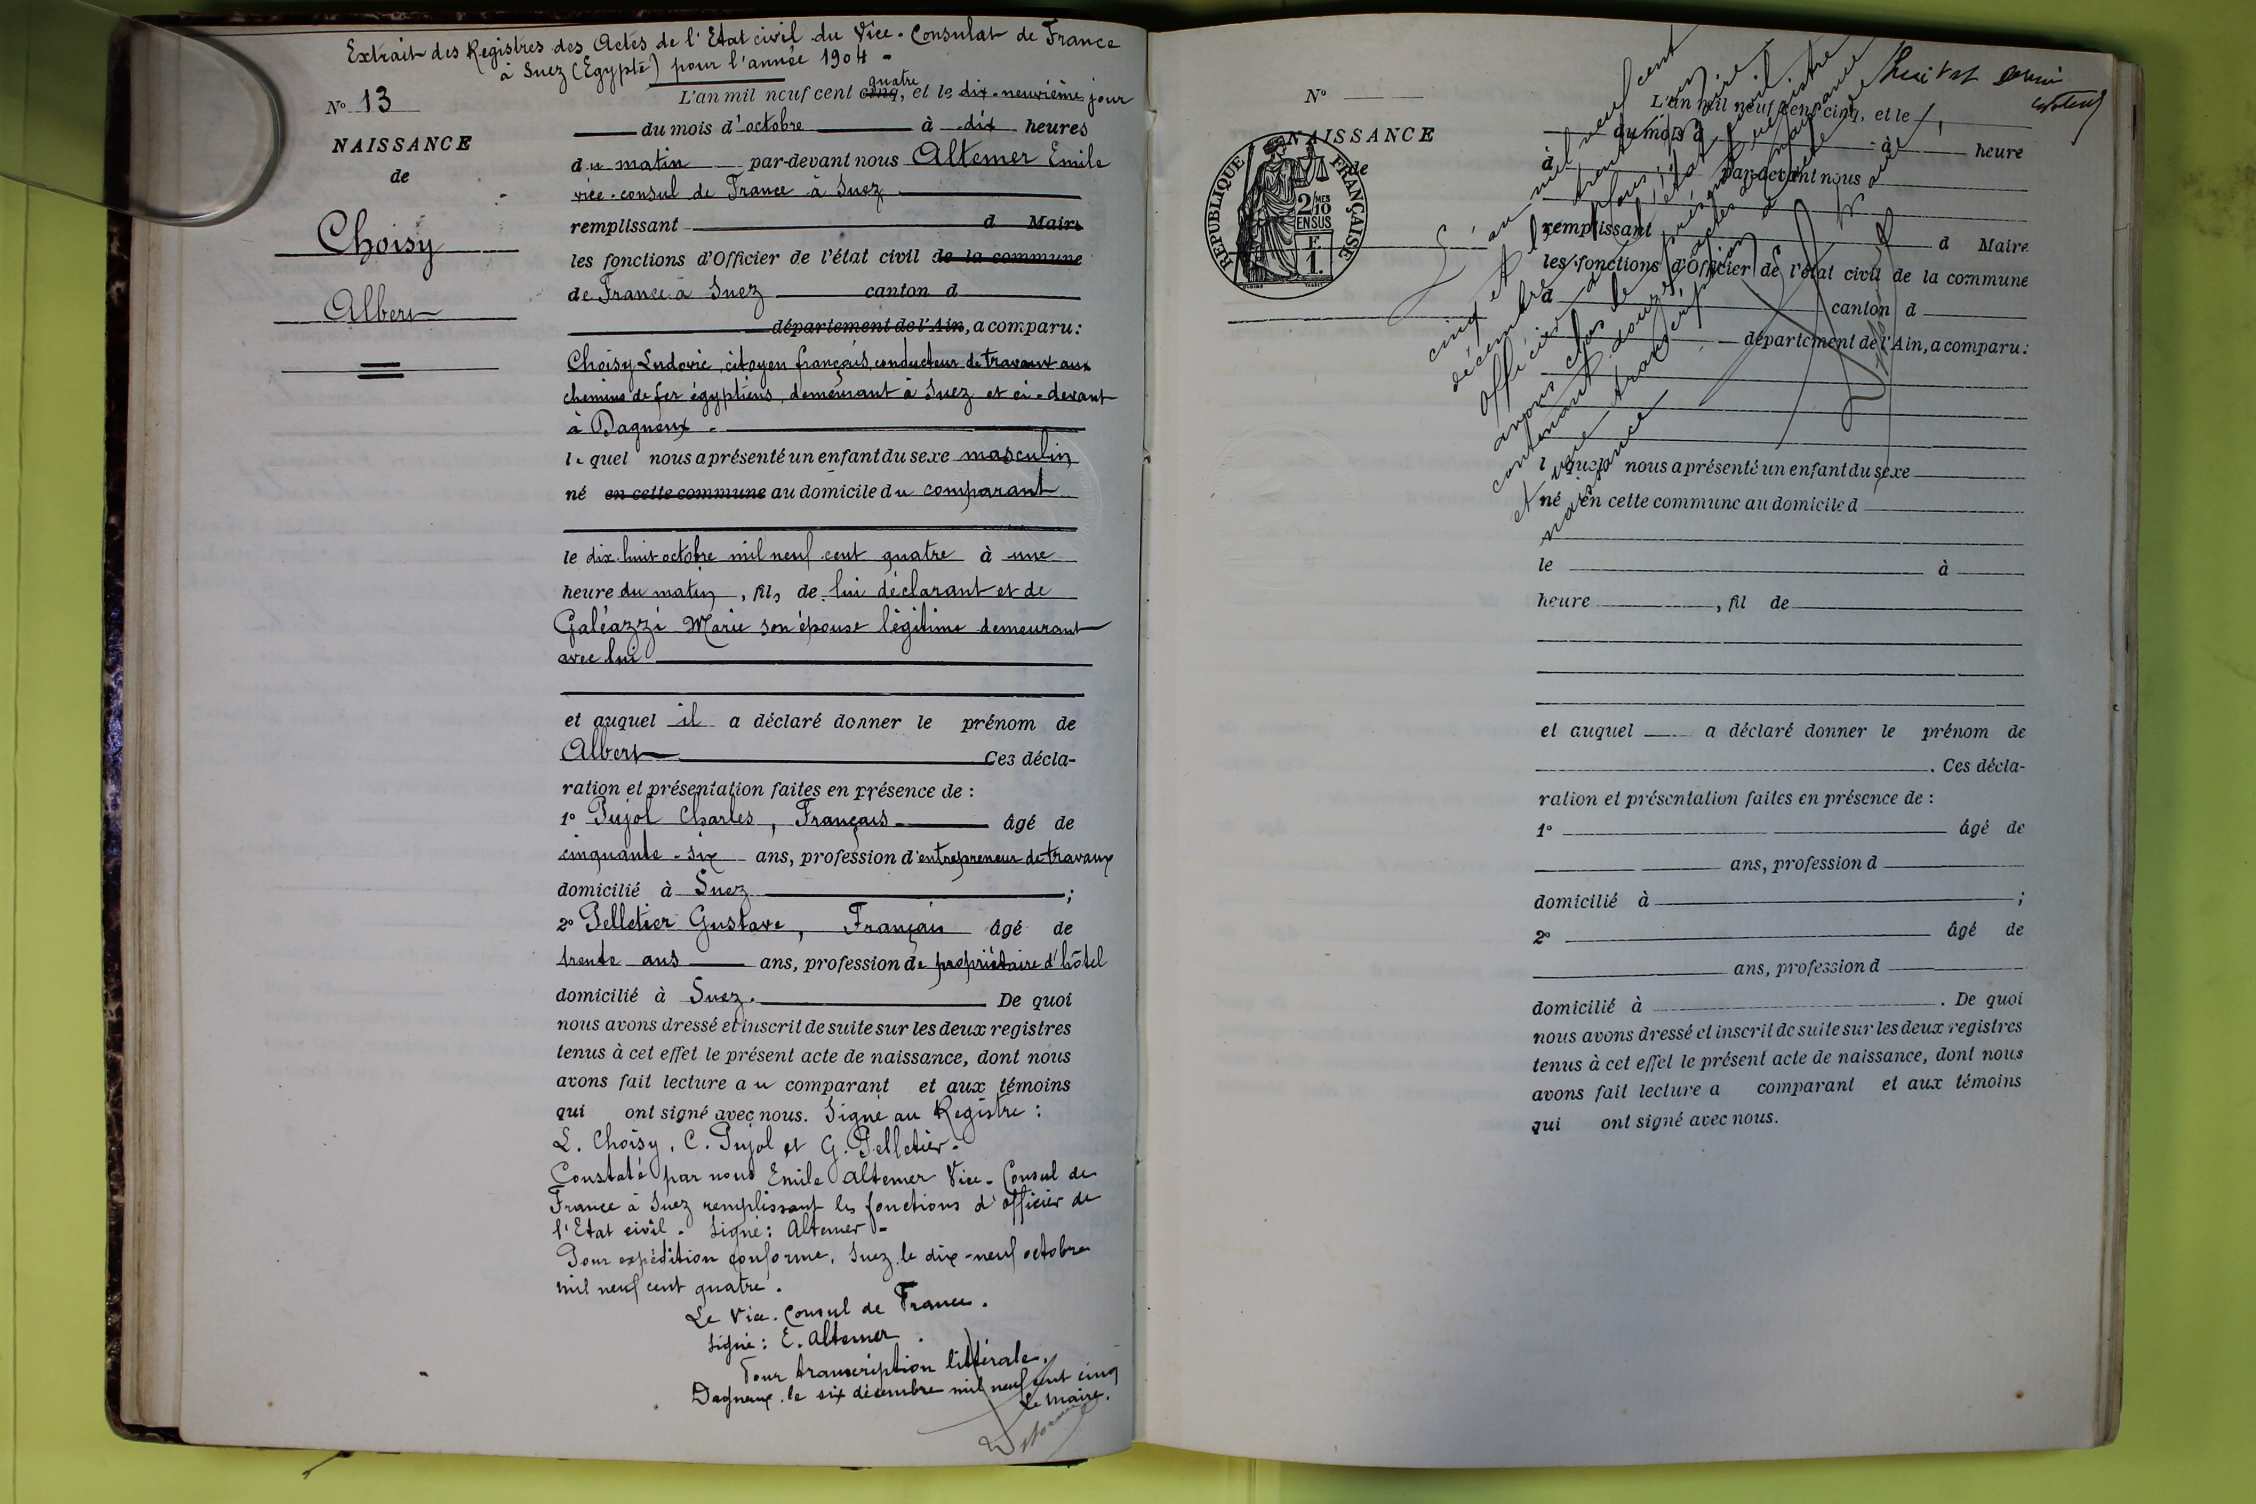 Extrait des Registres des Actes de l'Etat civil du Vice-Consulat de France
à Suez (Egypte) pour l'année 1904 -
N° 13
NAISSANCE
de
Choisy
Albert
quatre
L'an mil neuf cent cinq, et le dix-neuvième jour
du mois d'octobre à dix heures
du matin par-devant nous Altemer Emile
vice-consul de France à Suez
remplissant d Maire
les fonctions d'Officier de l'état civil de la commune
de France à Suez canton d
département de l'Ain, a comparu:
Choisy Ludovic, citoyen français, conducteur de travaux aux
chemins de fer égyptiens, demeurant à Suez et ci-devant
à Dagneux -
lequel nous a présenté un enfant du sexe masculin
né en cette commune au domicile du comparant
le dix huit octobre mil neuf cent quatre à une
heure du matin, fils de lui déclarant et de
Galéazzi Marie son épouse légitime demeurant
avec lui
et auquel il a déclaré donner le prénom de
Albert Ces décla-
ration et présentation faites en présence de :
1° Pujol Charles, Français âgé de
cinquante-six ans, profession d'entrepreneur de travaux
domicilié à Suez ;
2° Pelletier Gustave, Français âgé de
trente ans ans, profession de propriétaire d'hôtel
domicilié à Suez. De quoi
nous avons dressé et inscrit de suite sur les deux registres
tenus à cet effet le présent acte de naissance, dont nous
avons fait lecture au comparant et aux témoins
qui ont signé avec nous. Signé au Registre :
L. Choisy, C. Pujol et G. Pelletier -
Constaté par nous Emile Altemer Vice-Consul de
France à Suez remplissant les fonctions d'officier de
l'Etat civil - Signé : Altemer -
Pour expédition conforme, Suez le dix-neuf octobre
mil neuf cent quatre.
Le Vice-Consul de France.
signé : E. Altemer.
Pour transcription littérale.
Dagneux, le six décembre mil neuf cent cinq
Le Maire.
N°
NAISSANCE
de
REPUBLIQUE FRANÇAISE
2/10
MES
EN SUS
F
1.
L'an mil neuf cent cinq, et le
du mois d
à heure
par-devant nous
remplissant d Maire
les fonctions d'Officier de l'état civil de la commune
d canton d
département de l'Ain, a comparu :
L'an mil neuf cent
cinq et le trente un
décembre
Officier de l'état civil
avons clos le présent registre
contenant douze actes de naissance
et une transcription d'acte de
naissance
l quel nous a présenté un enfant du sexe
né en cette commune au domicile d
le à
heure , fil de
et auquel a déclaré donner le prénom de
. Ces décla-
ration et présentation faites en présence de :
1° âgé de
ans, profession d
domicilié à ;
2° âgé de
ans, profession d
domicilié à . De quoi
nous avons dressé et inscrit de suite sur les deux registres
tenus à cet effet le présent acte de naissance, dont nous
avons fait lecture a comparant et aux témoins
qui ont signé avec nous.